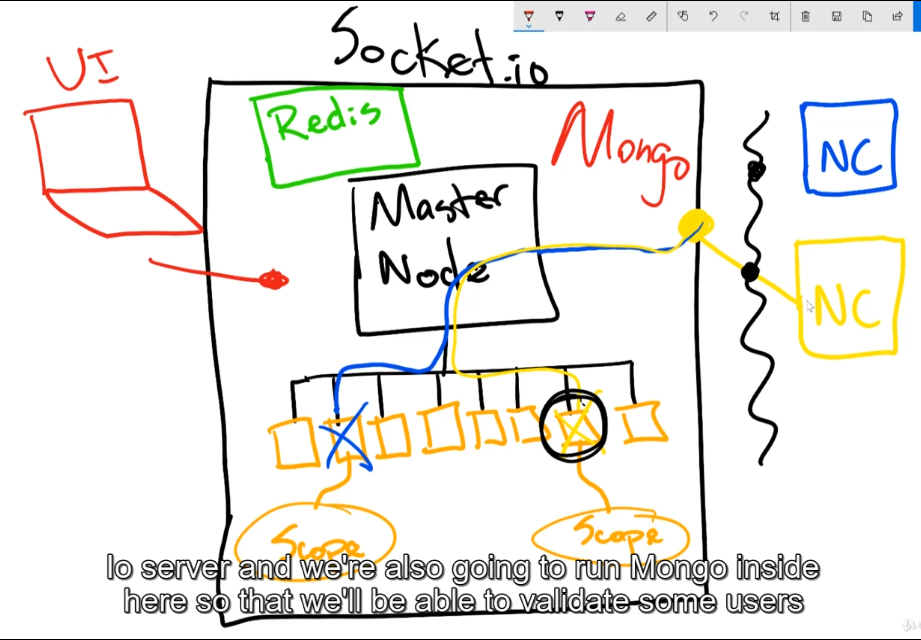 Socket.io
UI
Redis
Mongo
NC
Master
Node
NC
Scope
Scope
Io server and we're also going to run Mongo inside
here so that we'll be able to validate some users